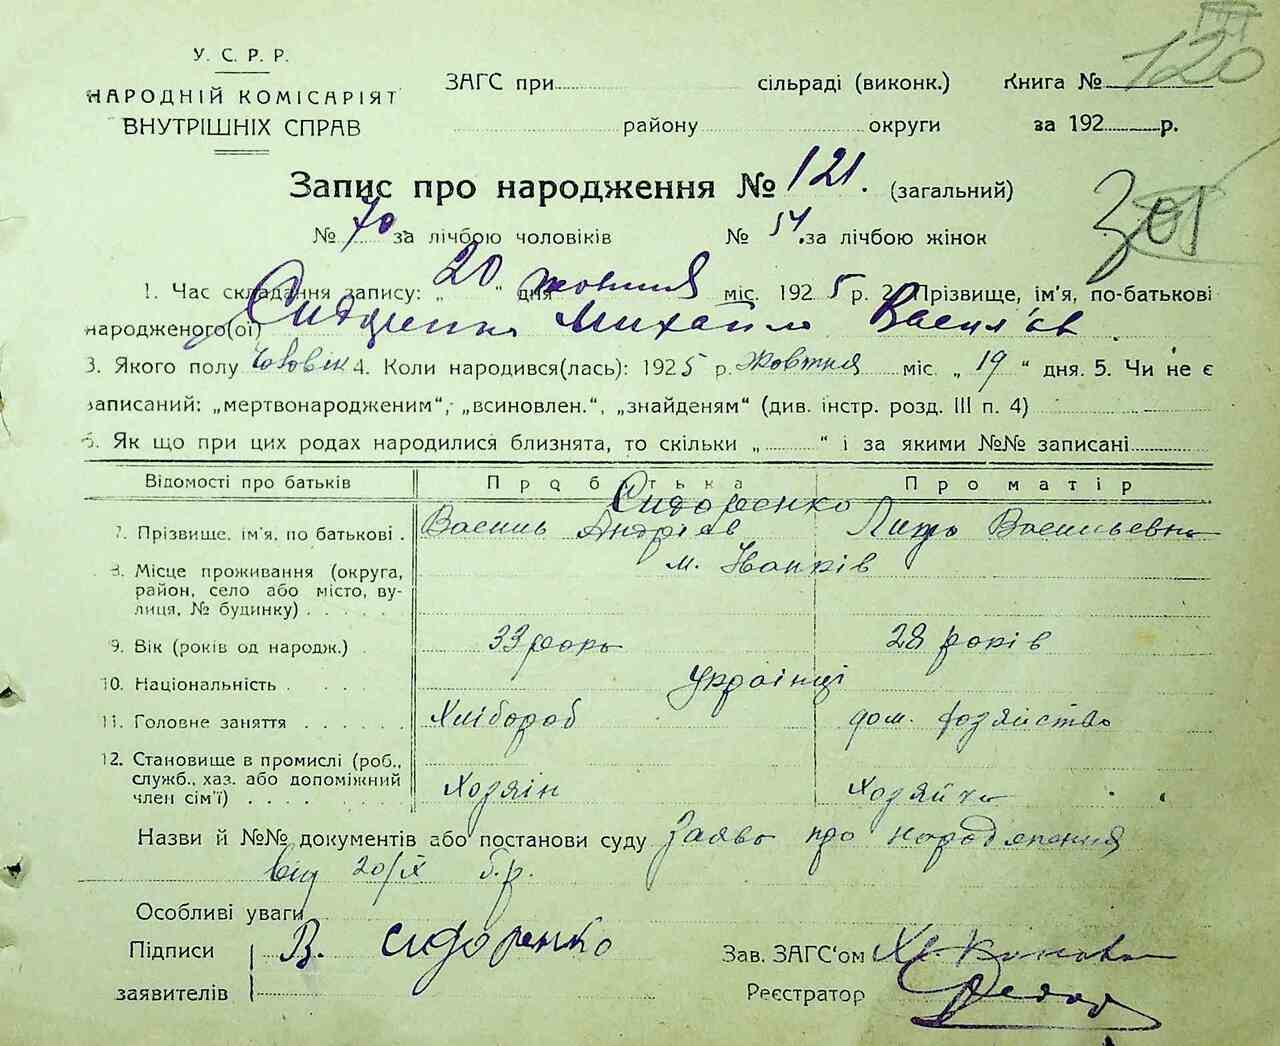 120
У. С. Р. Р.
НАРОДНІЙ КОМІСАРІЯТ
ВНУТРІШНІХ СПРАВ
ЗАГС при сільраді (виконк.) Книга №
району округи за 192 р.
Запис про народження № 121. (загальний)
№ 70 за лічбою чоловіків № 51 за лічбою жінок
1. Час складання запису: „20“ дня жовтня міс. 1925 р. 2. Прізвище, ім'я, по-батькові
народженого(ої) Михайло Васил'єв
3. Якого полу Чоловік 4. Коли народився(лась): 1925 р. жовтня міс. „19“ дня. 5. Чи не є
записаний: „мертвонародженим“, „всиновлен.“, „знайденям“ (див. інстр. розд. III п. 4)
6. Як що при цих родах народилися близнята, то скільки „ “ і за якими №№ записані
Відомості про батьків Про батька Про матір
Сидоренко
7. Прізвище, ім'я, по батькові . Василь Андрієв Васильевна
8. Місце проживання (округа, м. Іванків
район, село або місто, ву-
лиця, № будинку) . . . . .
9. Вік (років од народж.) . 33 роки 28 років
10. Національність . . . . . Українці
11. Головне заняття . . . . . Хлібороб дом. хозяйство
12. Становище в промислі (роб.,
служб., хаз. або допоміжний
член сім'ї) . . . . . Хозяїн Хозяйка
Назви й №№ документів або постанови суду Заява про народження
від 20/X б.р.
Особливі уваги
Підписи В. Сидоренко Зав. ЗАГС'ом
заявителів Реєстратор